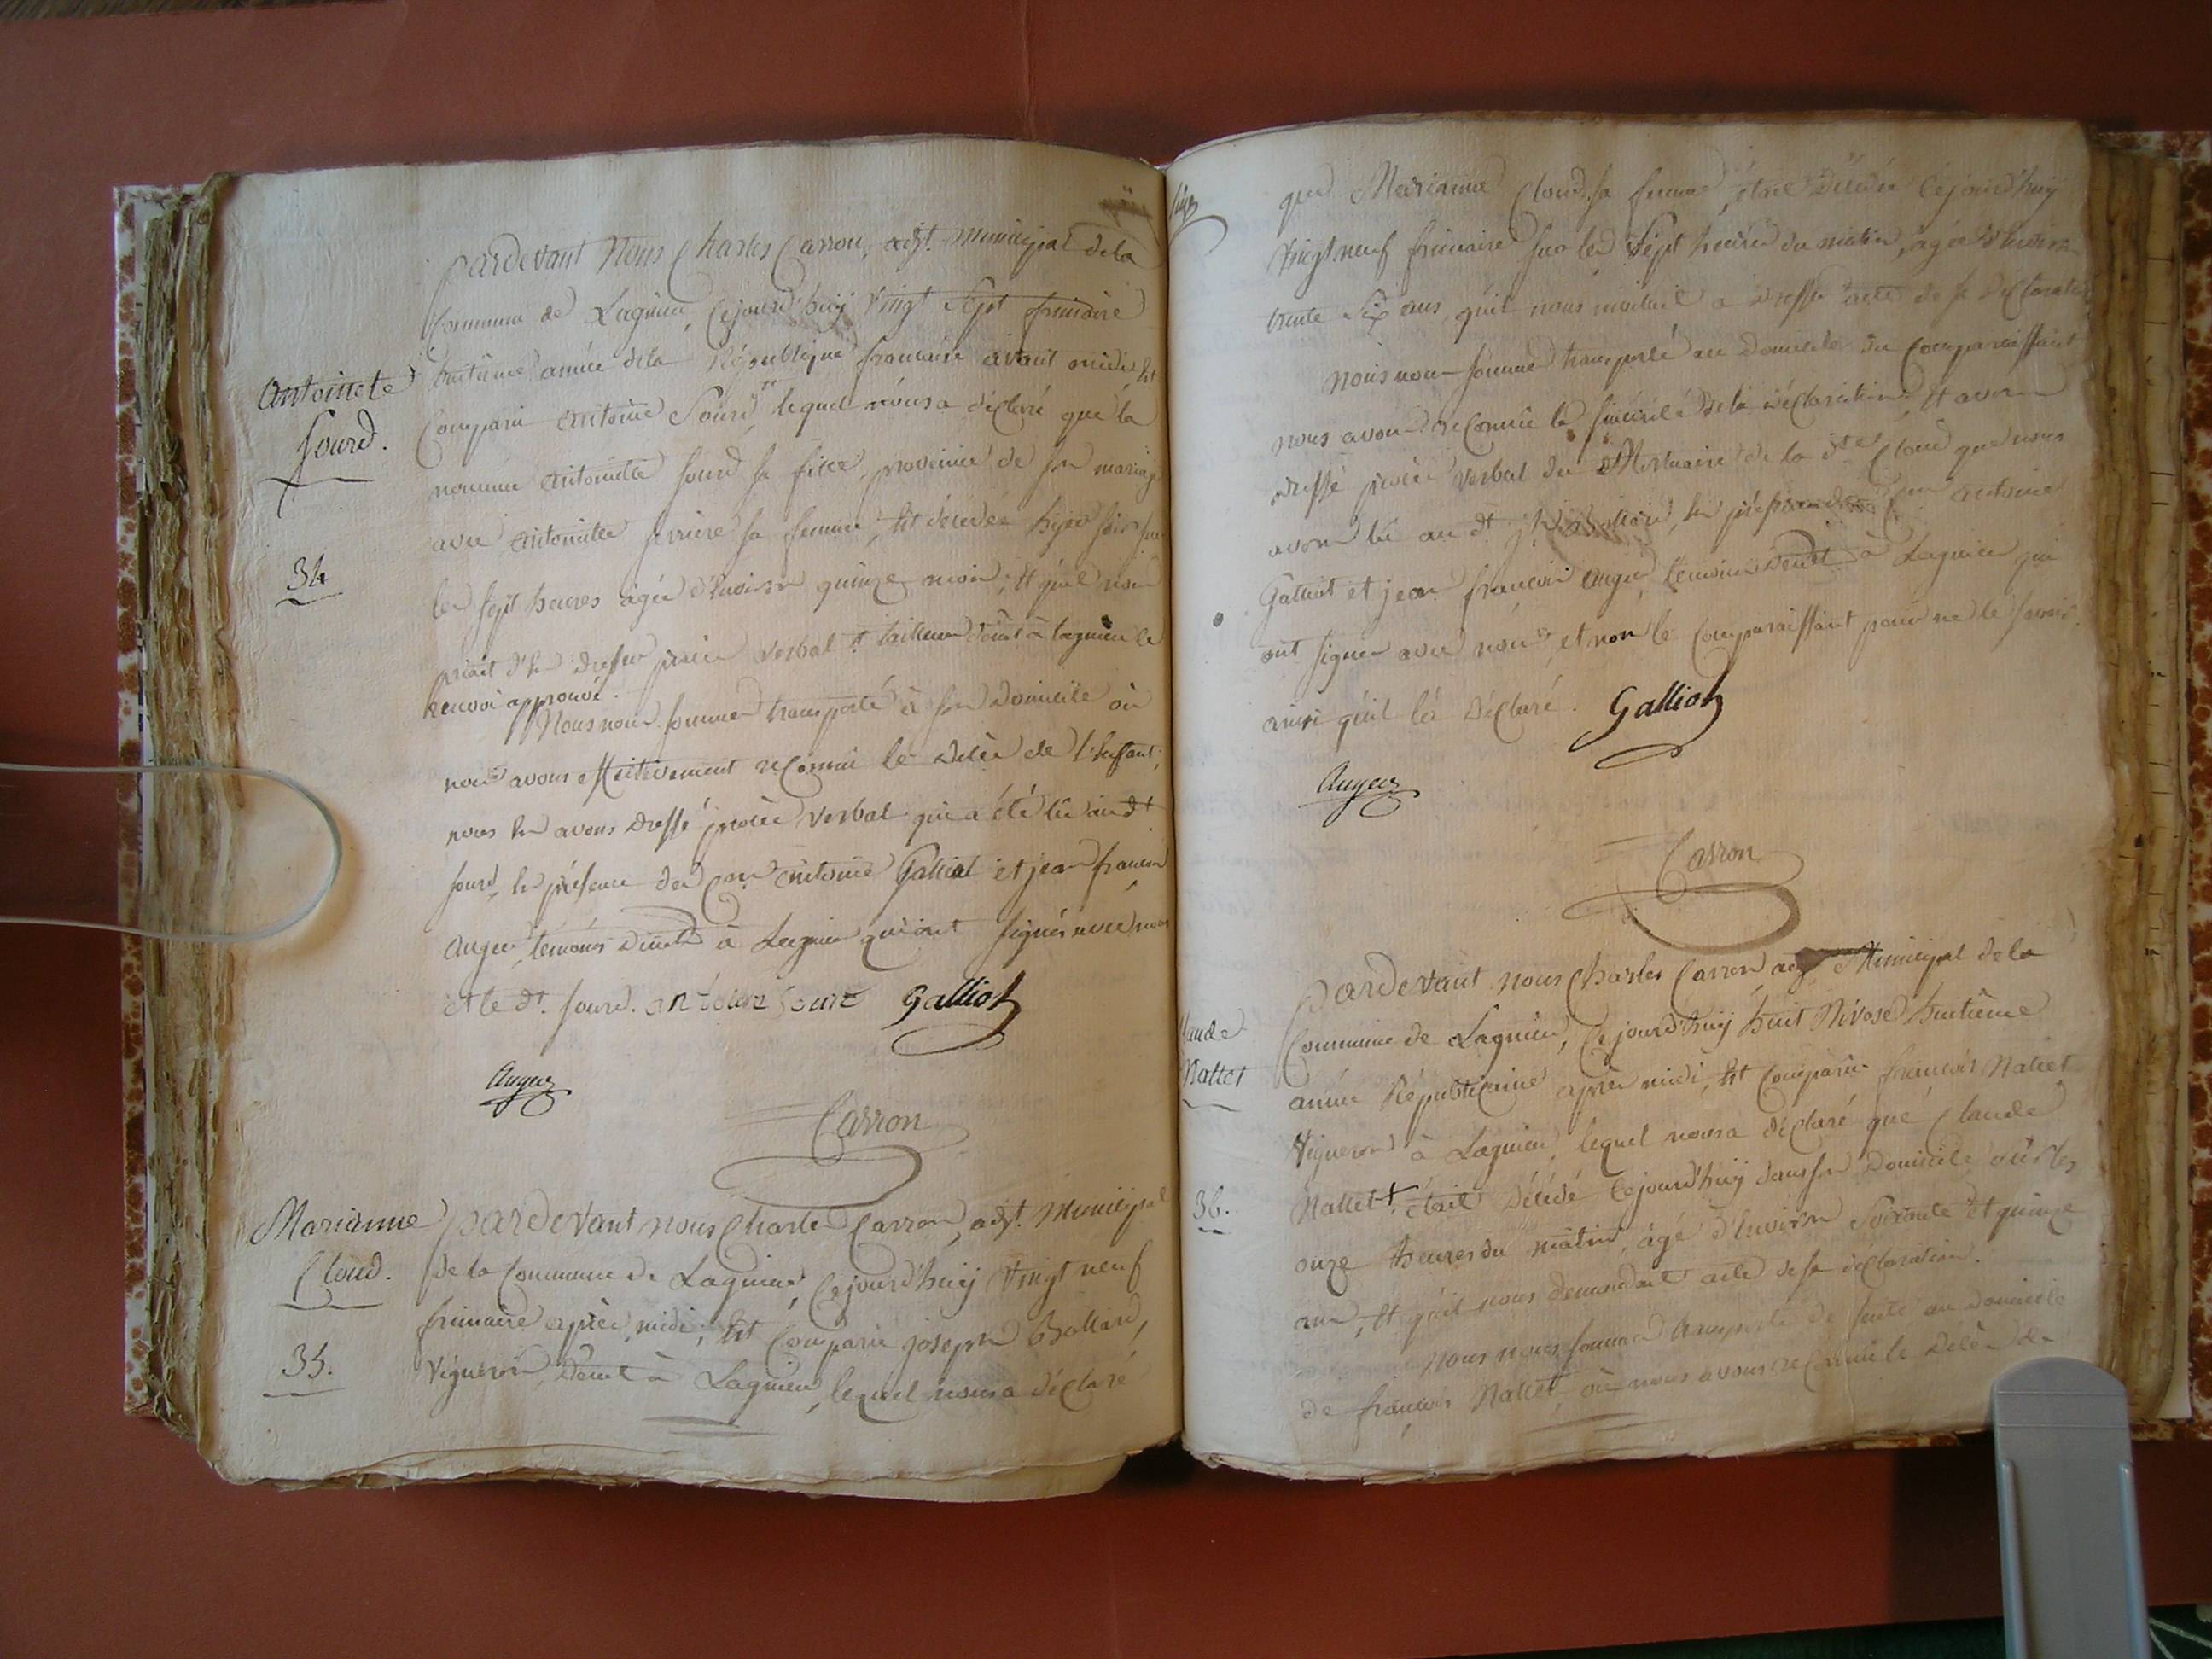 Antoinete
Sourd.
34
pardevant Nous Charles Carron, agt. Municipal dela
Commune de Lagnieu, Cejourd'huy Vingt Sept frimaire
huitième année dela République francaise avant midi, Est
Comparu Antoine Sourd lequel nous a déclaré que la
nommée Antoinette Sourd sa fille, provenüe de son mariage
avec Antoinette sa femme, Est décédée hyer soir sur
les sept heures agée d'Environ quinze mois, Et qu'il nous
priait d'En dresser procès Verbal # tailleur demt à Lagnieu le
Renvoi approuvé.
Nous nous sommes transporté à son Domicile où
nous avons Effectivement reConnu le décès de l'Enfant,
nous En avons Dressé procès verbal qui a été lû au dt
Sourd, En présence des Cens Antoine Galliot et jean francois
Auger, témoins Demts à Lagnieu qui ont signés avec nous
et le dt. Sourd. antoine Sourd Galliot
Auger
Carron
Marianne
Cloud.
35.
pardevant nous Charles Carron, agt. Municipal
de la Commune de Lagnieu, Cejourd'huy Vingt neuf
frimaire après midi, Est Comparu joseph Bollard,
Vigneron, Demt à Lagnieu, lequel nous a déclaré
que Marianne Cloud sa femme, étoit Décédée Cejourd'huy
Vingt neuf frimaire sur les Sept heures du matin, agée d'Environ
trente Six ans, qu'il nous invitait a Dresser acte de sa déclaration
Nous nous sommes transporté au Domicile du Comparaissant
nous avons reConnue la sincérité dela déclaration, Et avons
dressé procès Verbal du Mortuaire de la dte Cloud que nous
avons lû au dt. Bollard, En présence des Cens Antoine
Galliot et jean francois Auger, témoins Demt à Lagnieu qui
ont signés avec nous, et non le Comparaissant pour ne le savoir
ainsi qu'il l'a Déclaré. Galliot
Auger
Carron
Claude
Nallet
36.
Pardevant nous Charles Carron, agt Municipal dela
Commune de Lagnieu, Cejourd'huy huit Nivose huitième
année Républicaine après midi, Est Comparu francois Nallet
Vigneron à Lagnieu, lequel nous a déclaré que Claude
Nallet était Décédé Cejourd'huy dans son Domicile sur les
onze heures du matin, agé d'Environ Soixante et quinze
ans, Et qu'il nous demandait acte de sa déclaration.
Nous nous sommes transporté de suite au Domicile
de francois Nallet, où nous avons reConnu le Décès de